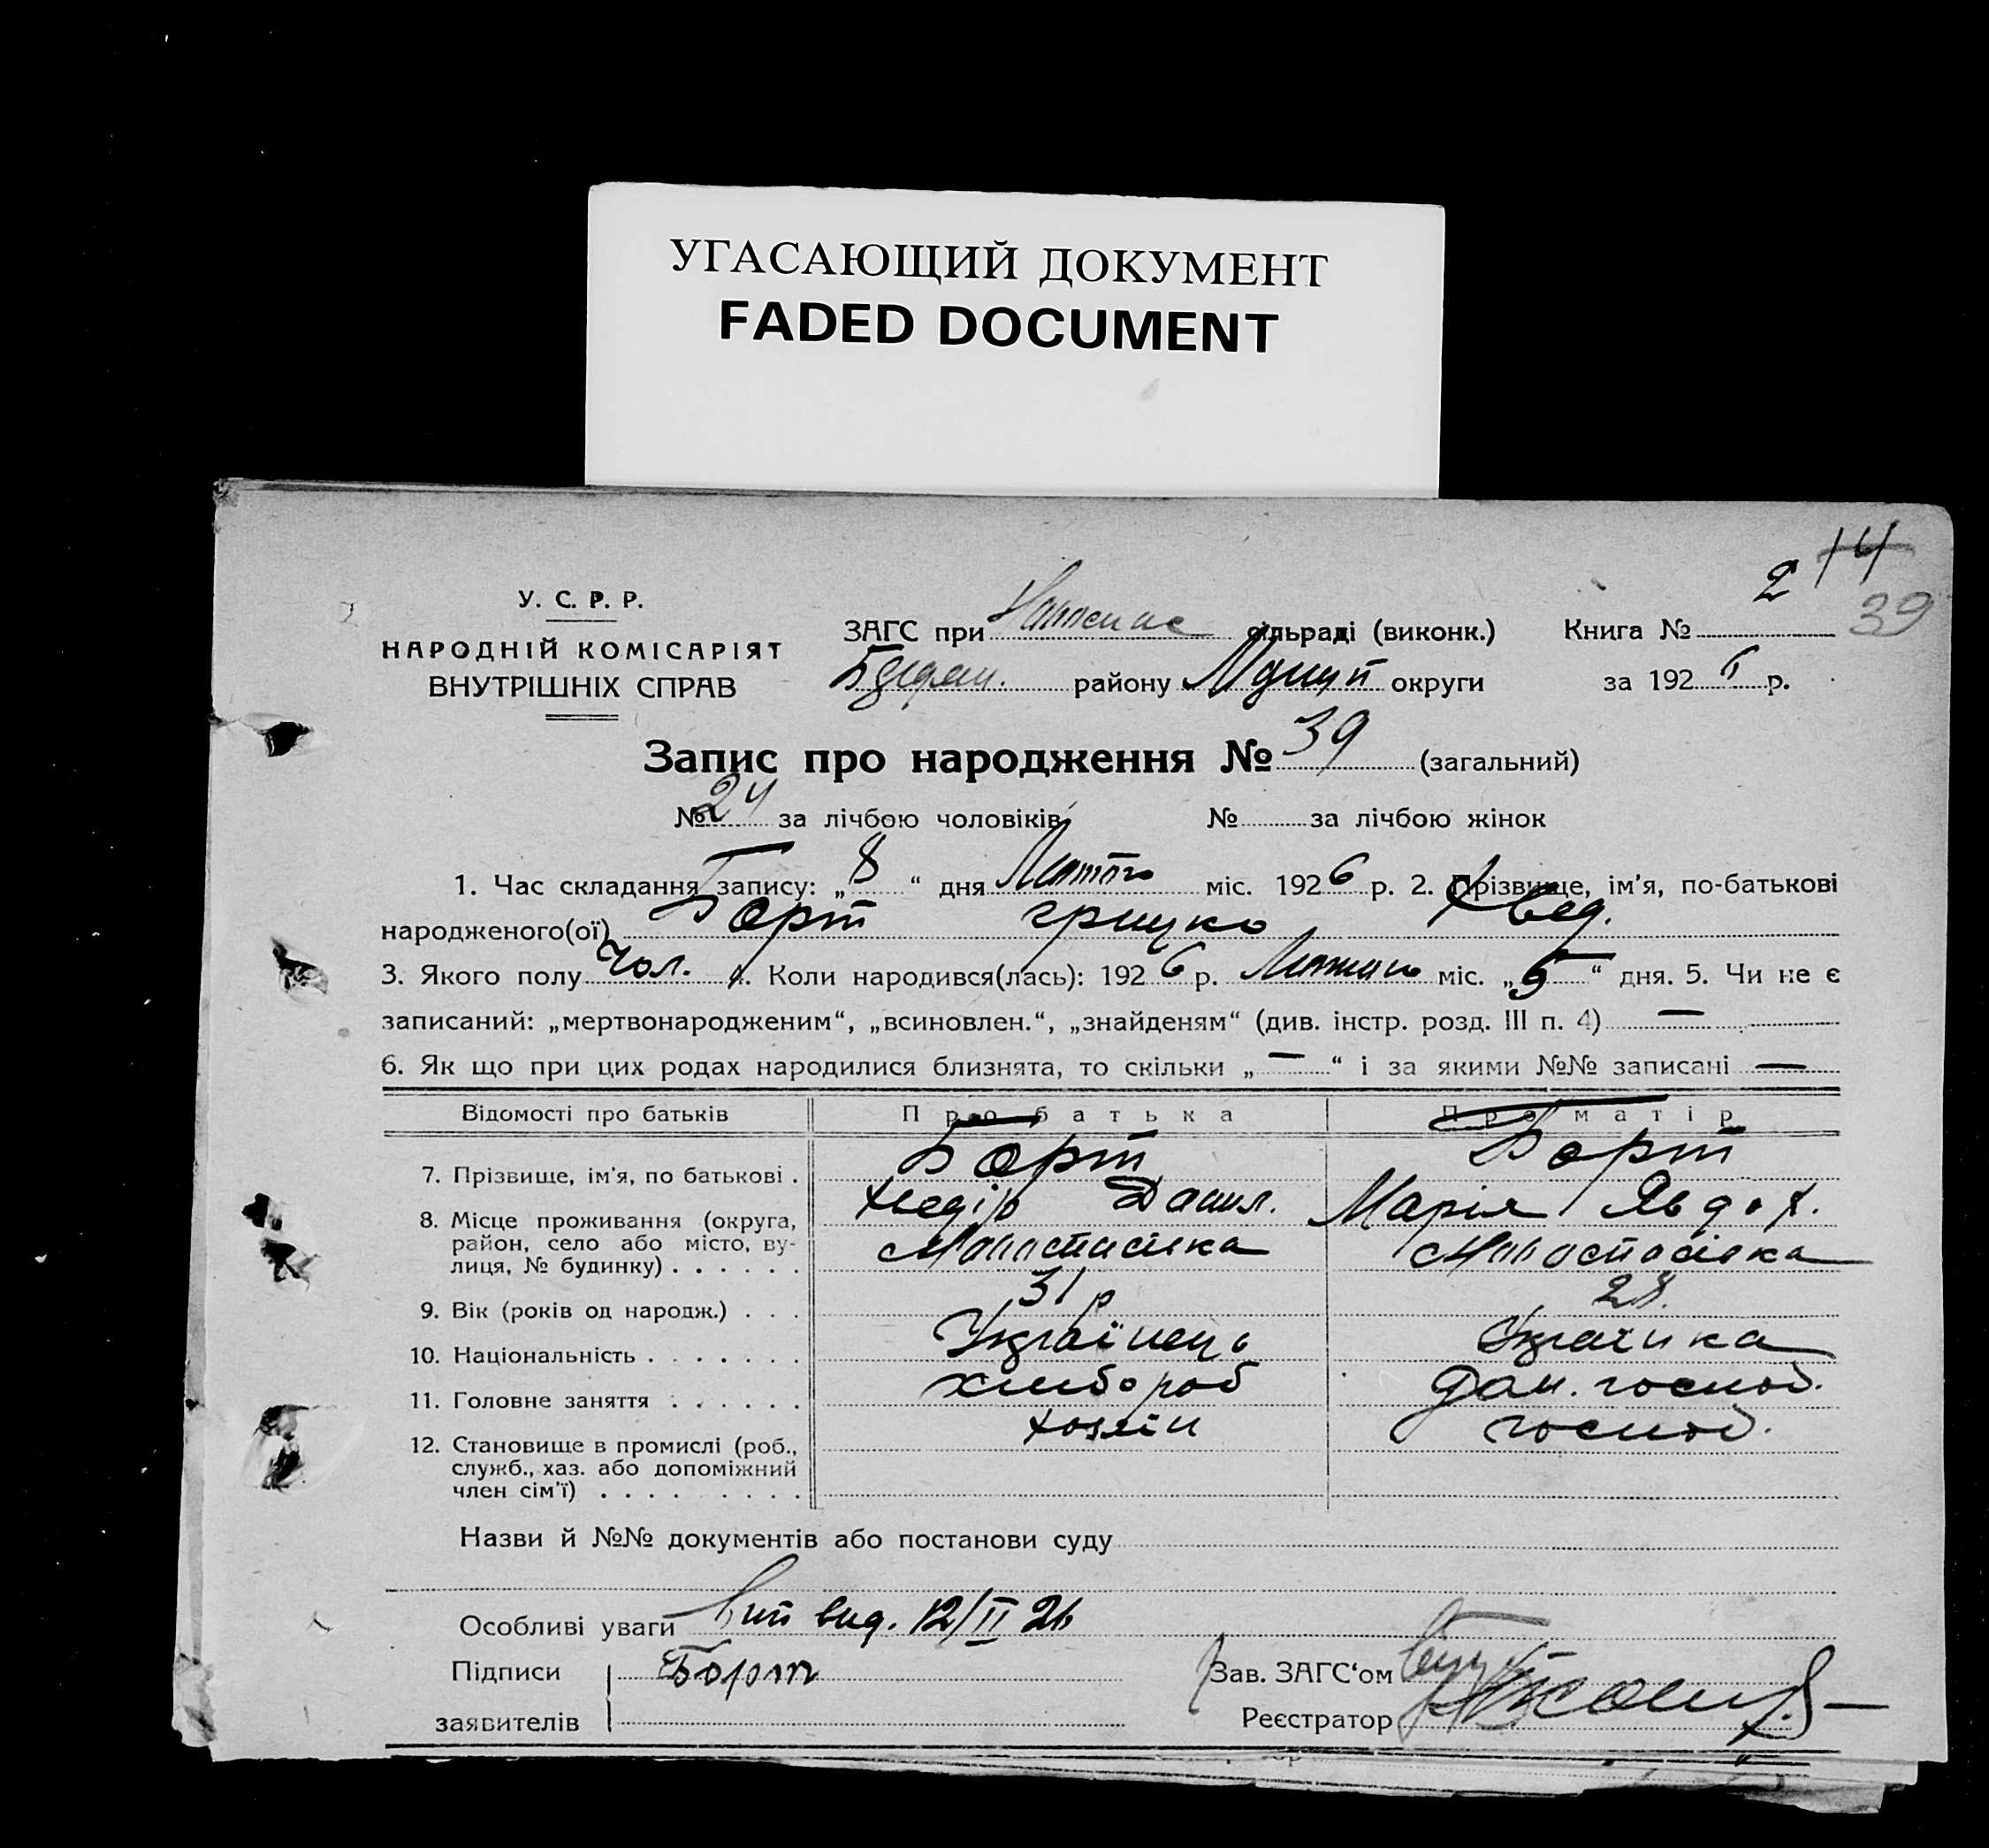 УГАСАЮЩИЙ ДОКУМЕНТ
FADED DOCUMENT
2 14
39
У. С. Р. Р.
НАРОДНІЙ КОМІСАРІЯТ
ВНУТРІШНІХ СПРАВ
ЗАГС при сільраді (виконк.) Книга №
району округи за 1926 р.
Запис про народження № 39 (загальний)
№ 24 за лічбою чоловіків № за лічбою жінок
1. Час складання запису: „8“ дня Лютого міс. 1926 р. 2. Прізвище, ім’я, по-батькові
народженого(ої) Борт Грицко Хвед.
3. Якого полу Чол. 4. Коли народився(лась): 1926 р. Лютого міс. „5“ дня. 5. Чи не є
записаний: „мертвонародженим“, „всиновлен.“, „знайденям“ (див. інстр. розд. III п. 4) —
6. Як що при цих родах народилися близнята, то скільки „—“ і за якими №№ записані —
Відомості про батьків Про батька Про матір
7. Прізвище, ім’я, по батькові . Борт Хведір Данил. Борт Марія Явдох.
8. Місце проживання (округа, район, село або місто, вулиця, № будинку) . . . . . .
9. Вік (років од народж.) . . . 31 р 28.
10. Національність . . . . . . . Українець Українка
11. Головне заняття . . . . . . хлібороб Дом. господ.
12. Становище в промислі (роб., служб., хаз. або допоміжний член сім’ї) . . . . . . . . хозяїн господ.
Назви й №№ документів або постанови суду
Особливі уваги Вип вид. 12/II 26
Підписи Борт Зав. ЗАГС‘ом
заявителів Реєстратор